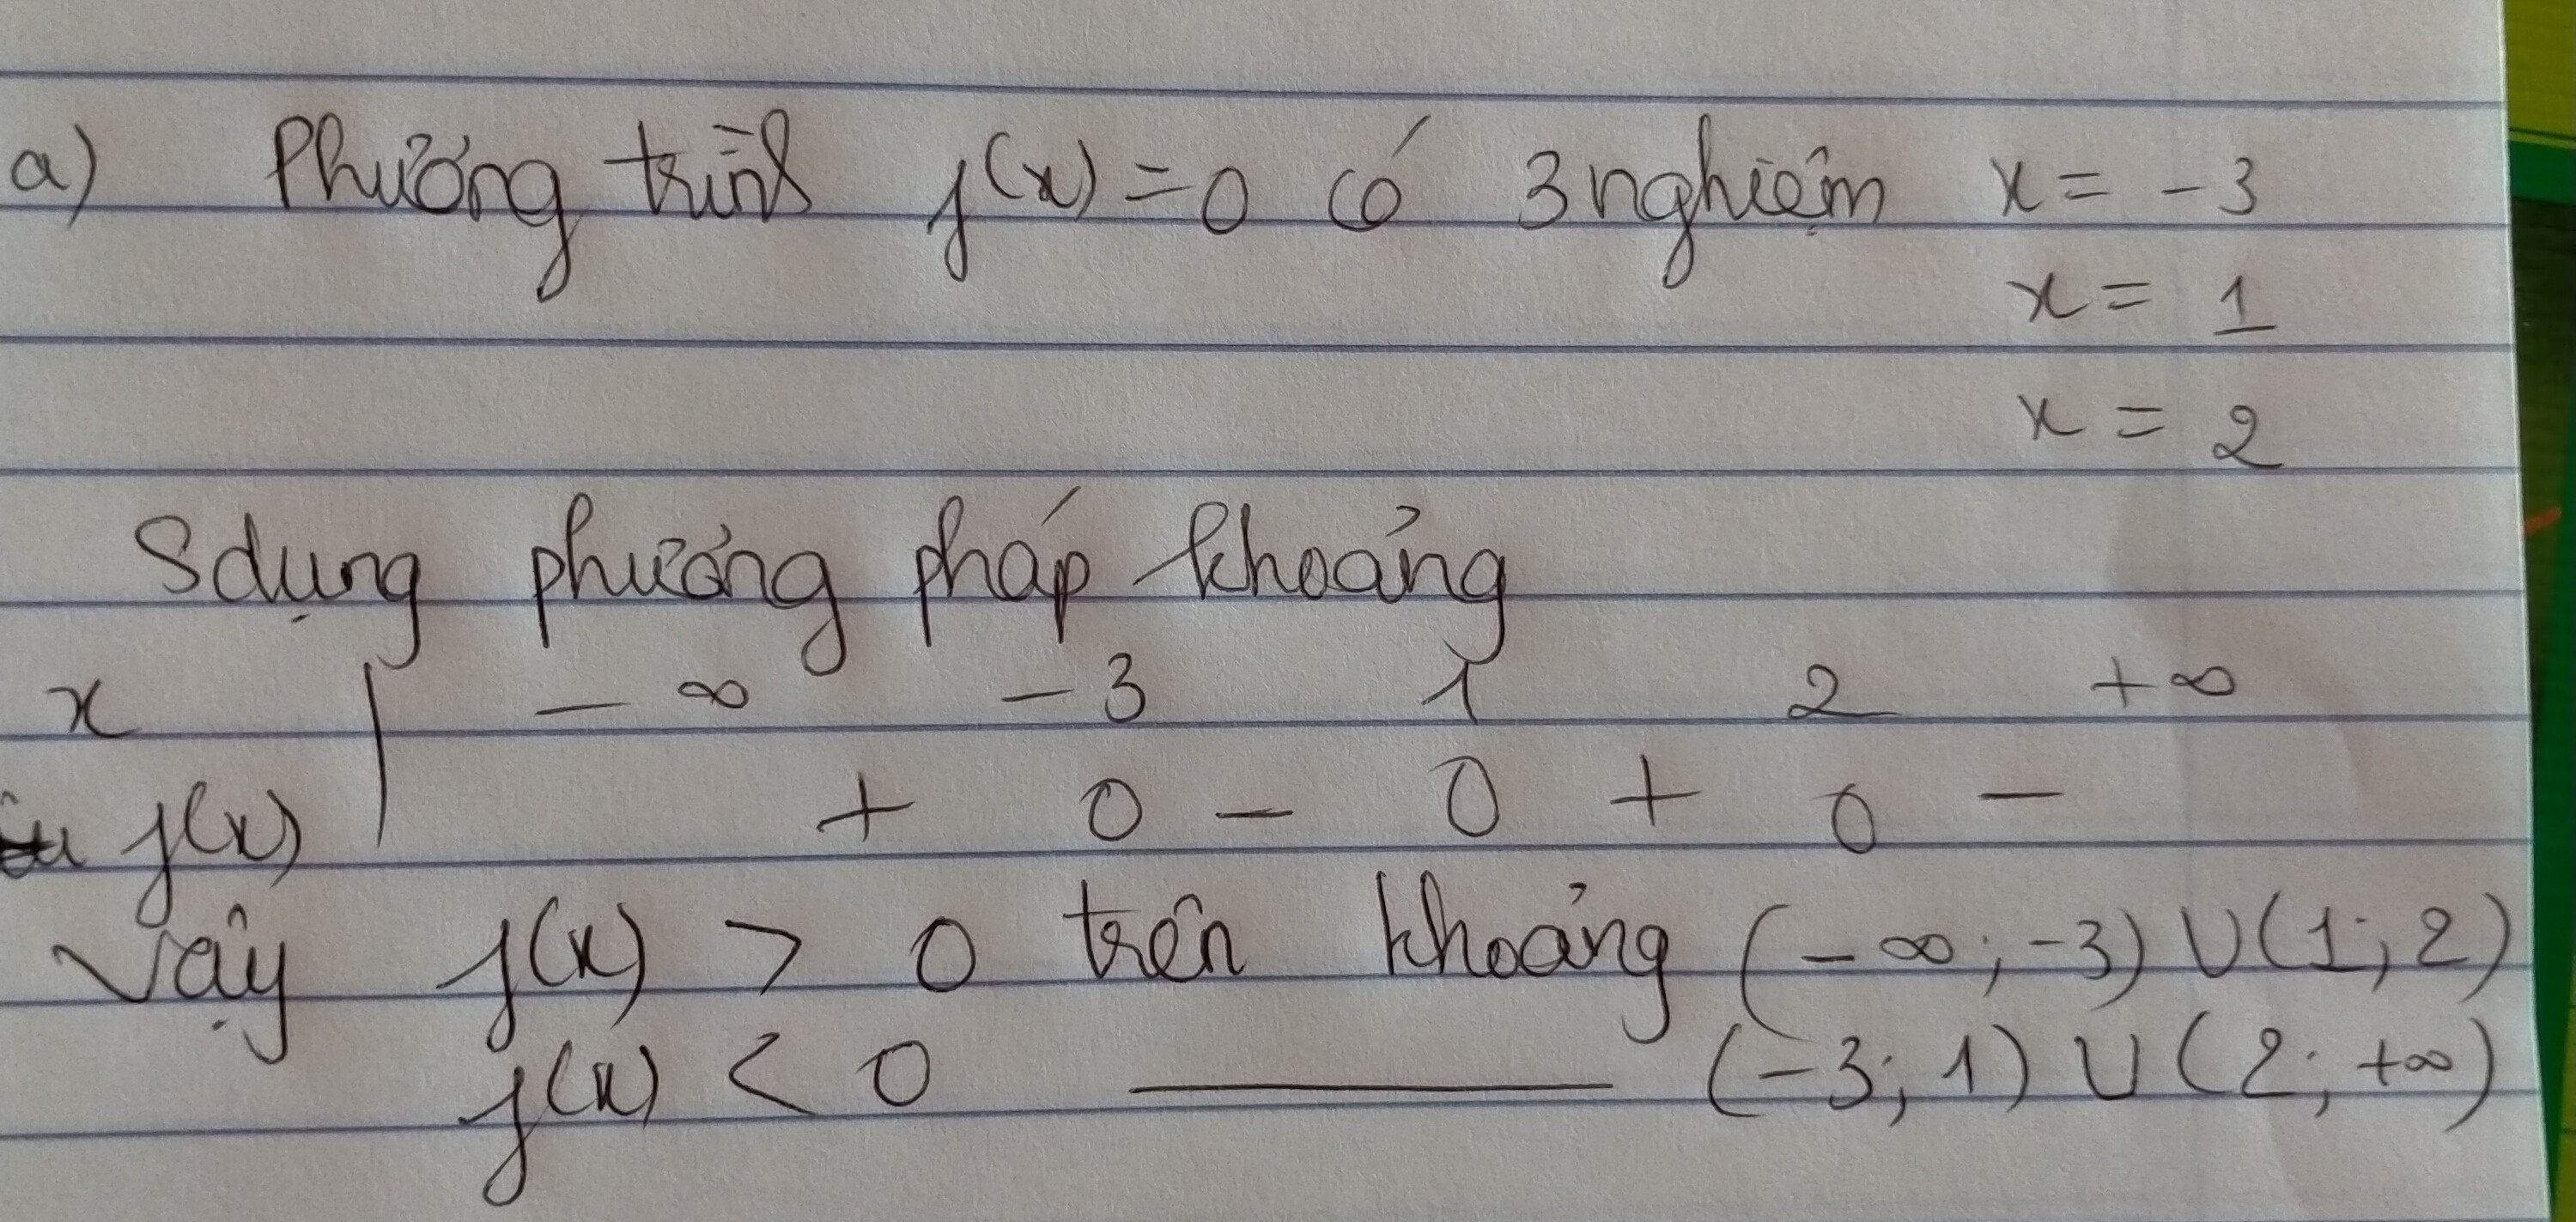 a) Phương trình f(x) = 0 có 3 nghiệm x = -3
x = 1
x = 2
Sdụng phương pháp khoảng
x | -∞ -3 1 2 +∞
f(x) | + 0 - 0 + 0 -
Vậy f(x) > 0 trên khoảng (-∞; -3) ∪ (1; 2)
f(x) < 0 ——— (-3; 1) ∪ (2; +∞)